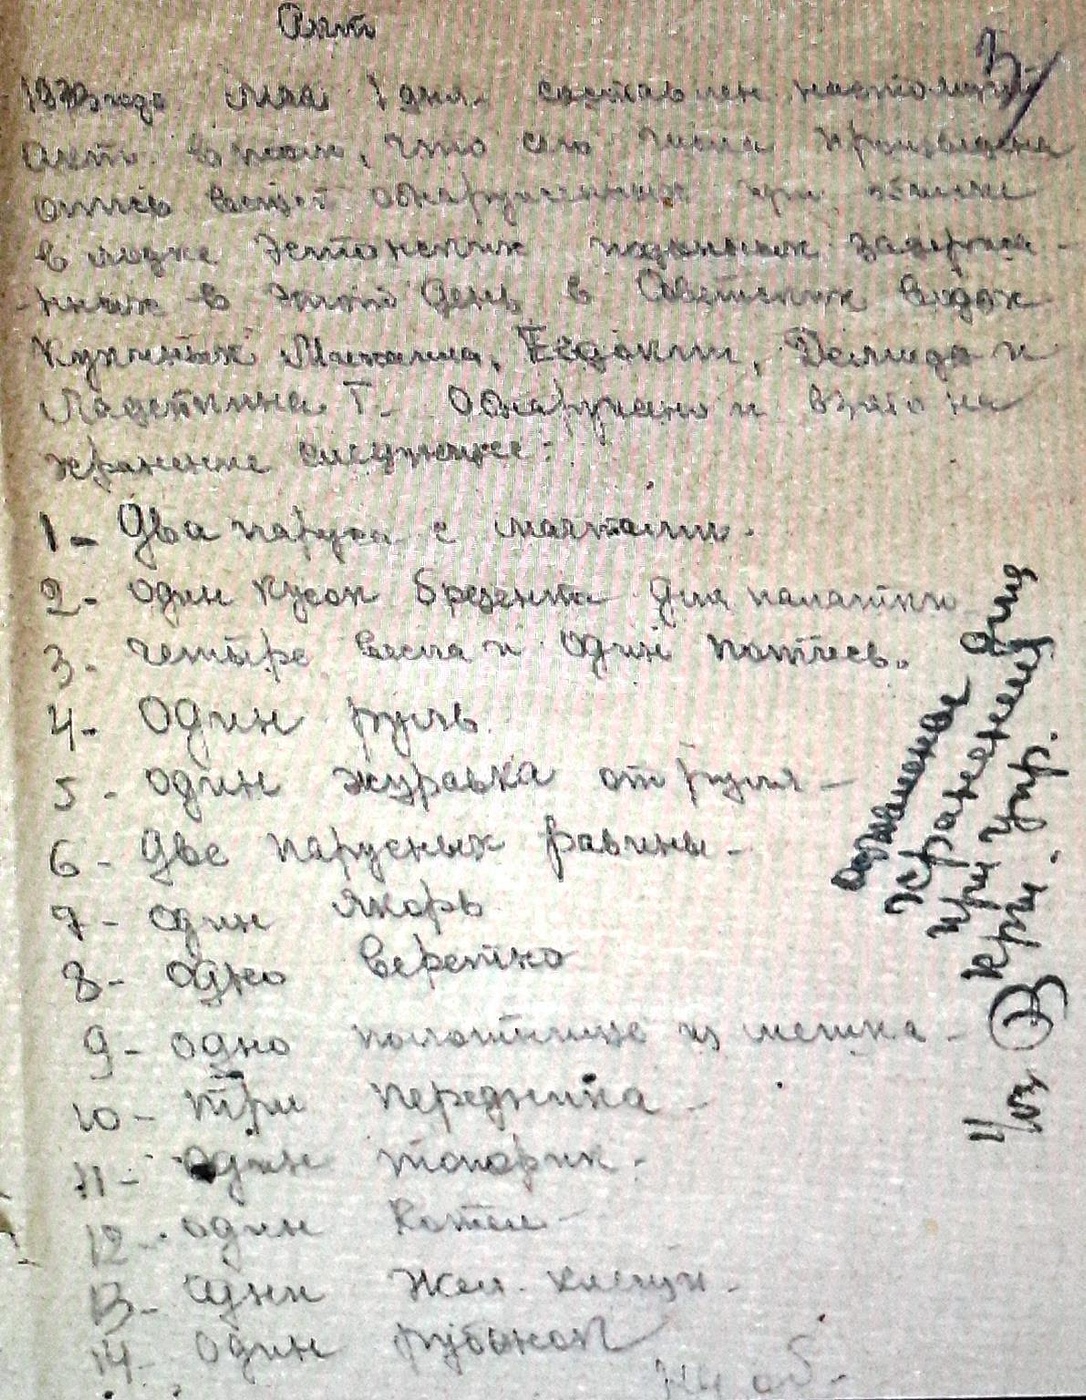 Акт
3
года мая 1 дня составлен настоящий
акт в том, что сего числа произведена
опись вещей обнаруженных при обыске
в лодке Эстонских подданых задержа-
нных в этот день в Советских водах
Михаила, Евдоким, Демида и
Т. Обнаружено и взято на
хранение следующее:
1- Два паруса с мачтами.
2- один кусок брезента для палатки
3- четыре весла и один потесь.
4- Один руль
5- один журавка от руля-
6- Две парусных равины-
7- один якорь
8- одно веретно
9- одно полотнище из мешка-
10- три передника-
11- один топорик-
12- один котел-
13- одни жел. клещи-
14- один рубанок
на об.
для
хранения
при упр.